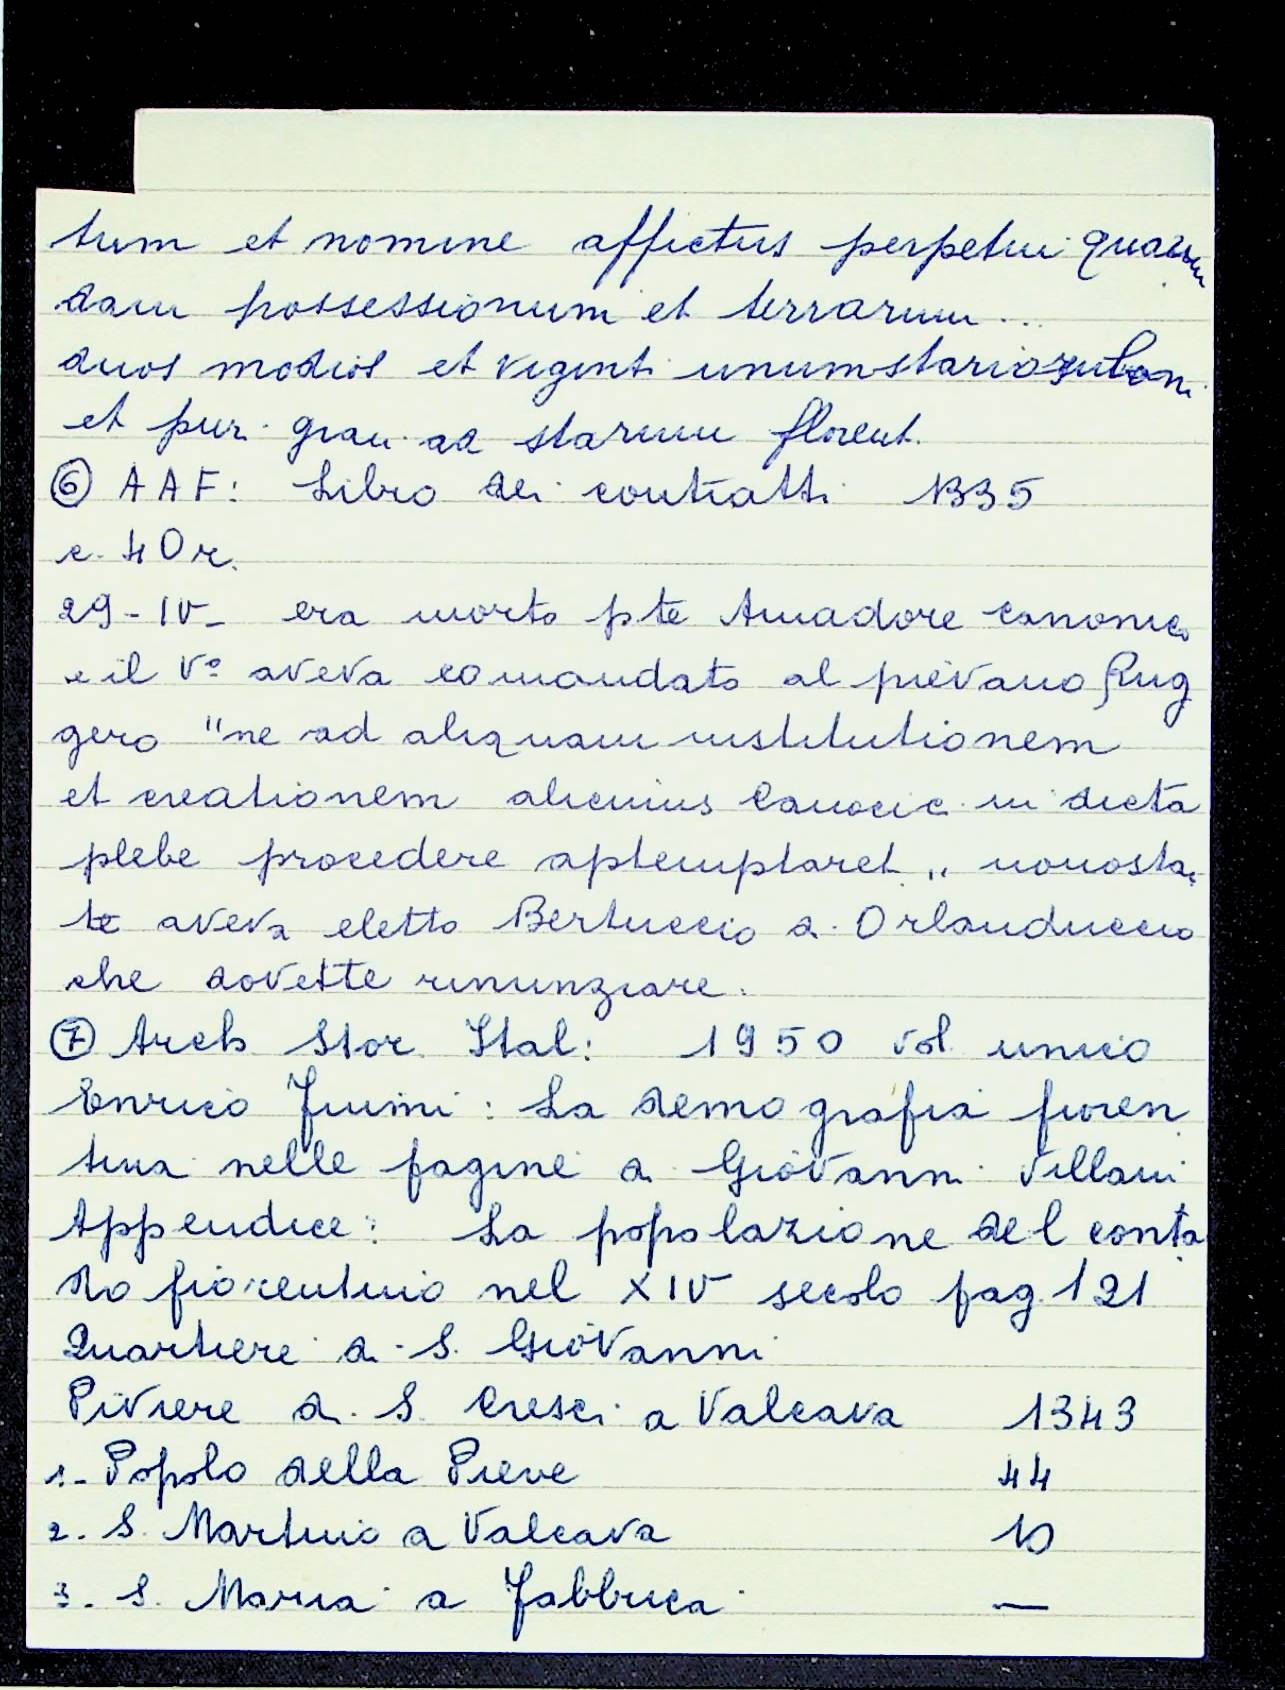 tum et nomine affictus perpetui quarun
dam possessionum et terrarum...
duos modios et viginti unum starios boni
et puri grani ad starium florent.
⑥ AAF: Libro dei contratti 1335
c. 40r.
29-IV- era morto pte Amadore canonico
e il Vº aveva comandato al pievano Rug
gero "ne ad aliquam institutionem
et creationem alicuius Canocic. in dicta
plebe procedere aptemptaret" nonostan
te aveva eletto Bertuccio di Orlanduccio
che dovette rinunziare.
⑦ Arch. Stor. Ital: 1950 vol. unico
Enrico Fiumi: La demografia fioren
tina nelle pagine di Giovanni Villani
Appendice: La popolazione del conta
do fiorentino nel XIV secolo pag. 121
Quartiere di S. Giovanni
Piviere di S. Cresci a Valcava 1343
1.- Popolo della Pieve 44
2. S. Martino a Valcava 10
3. S. Maria a Fabbrica —